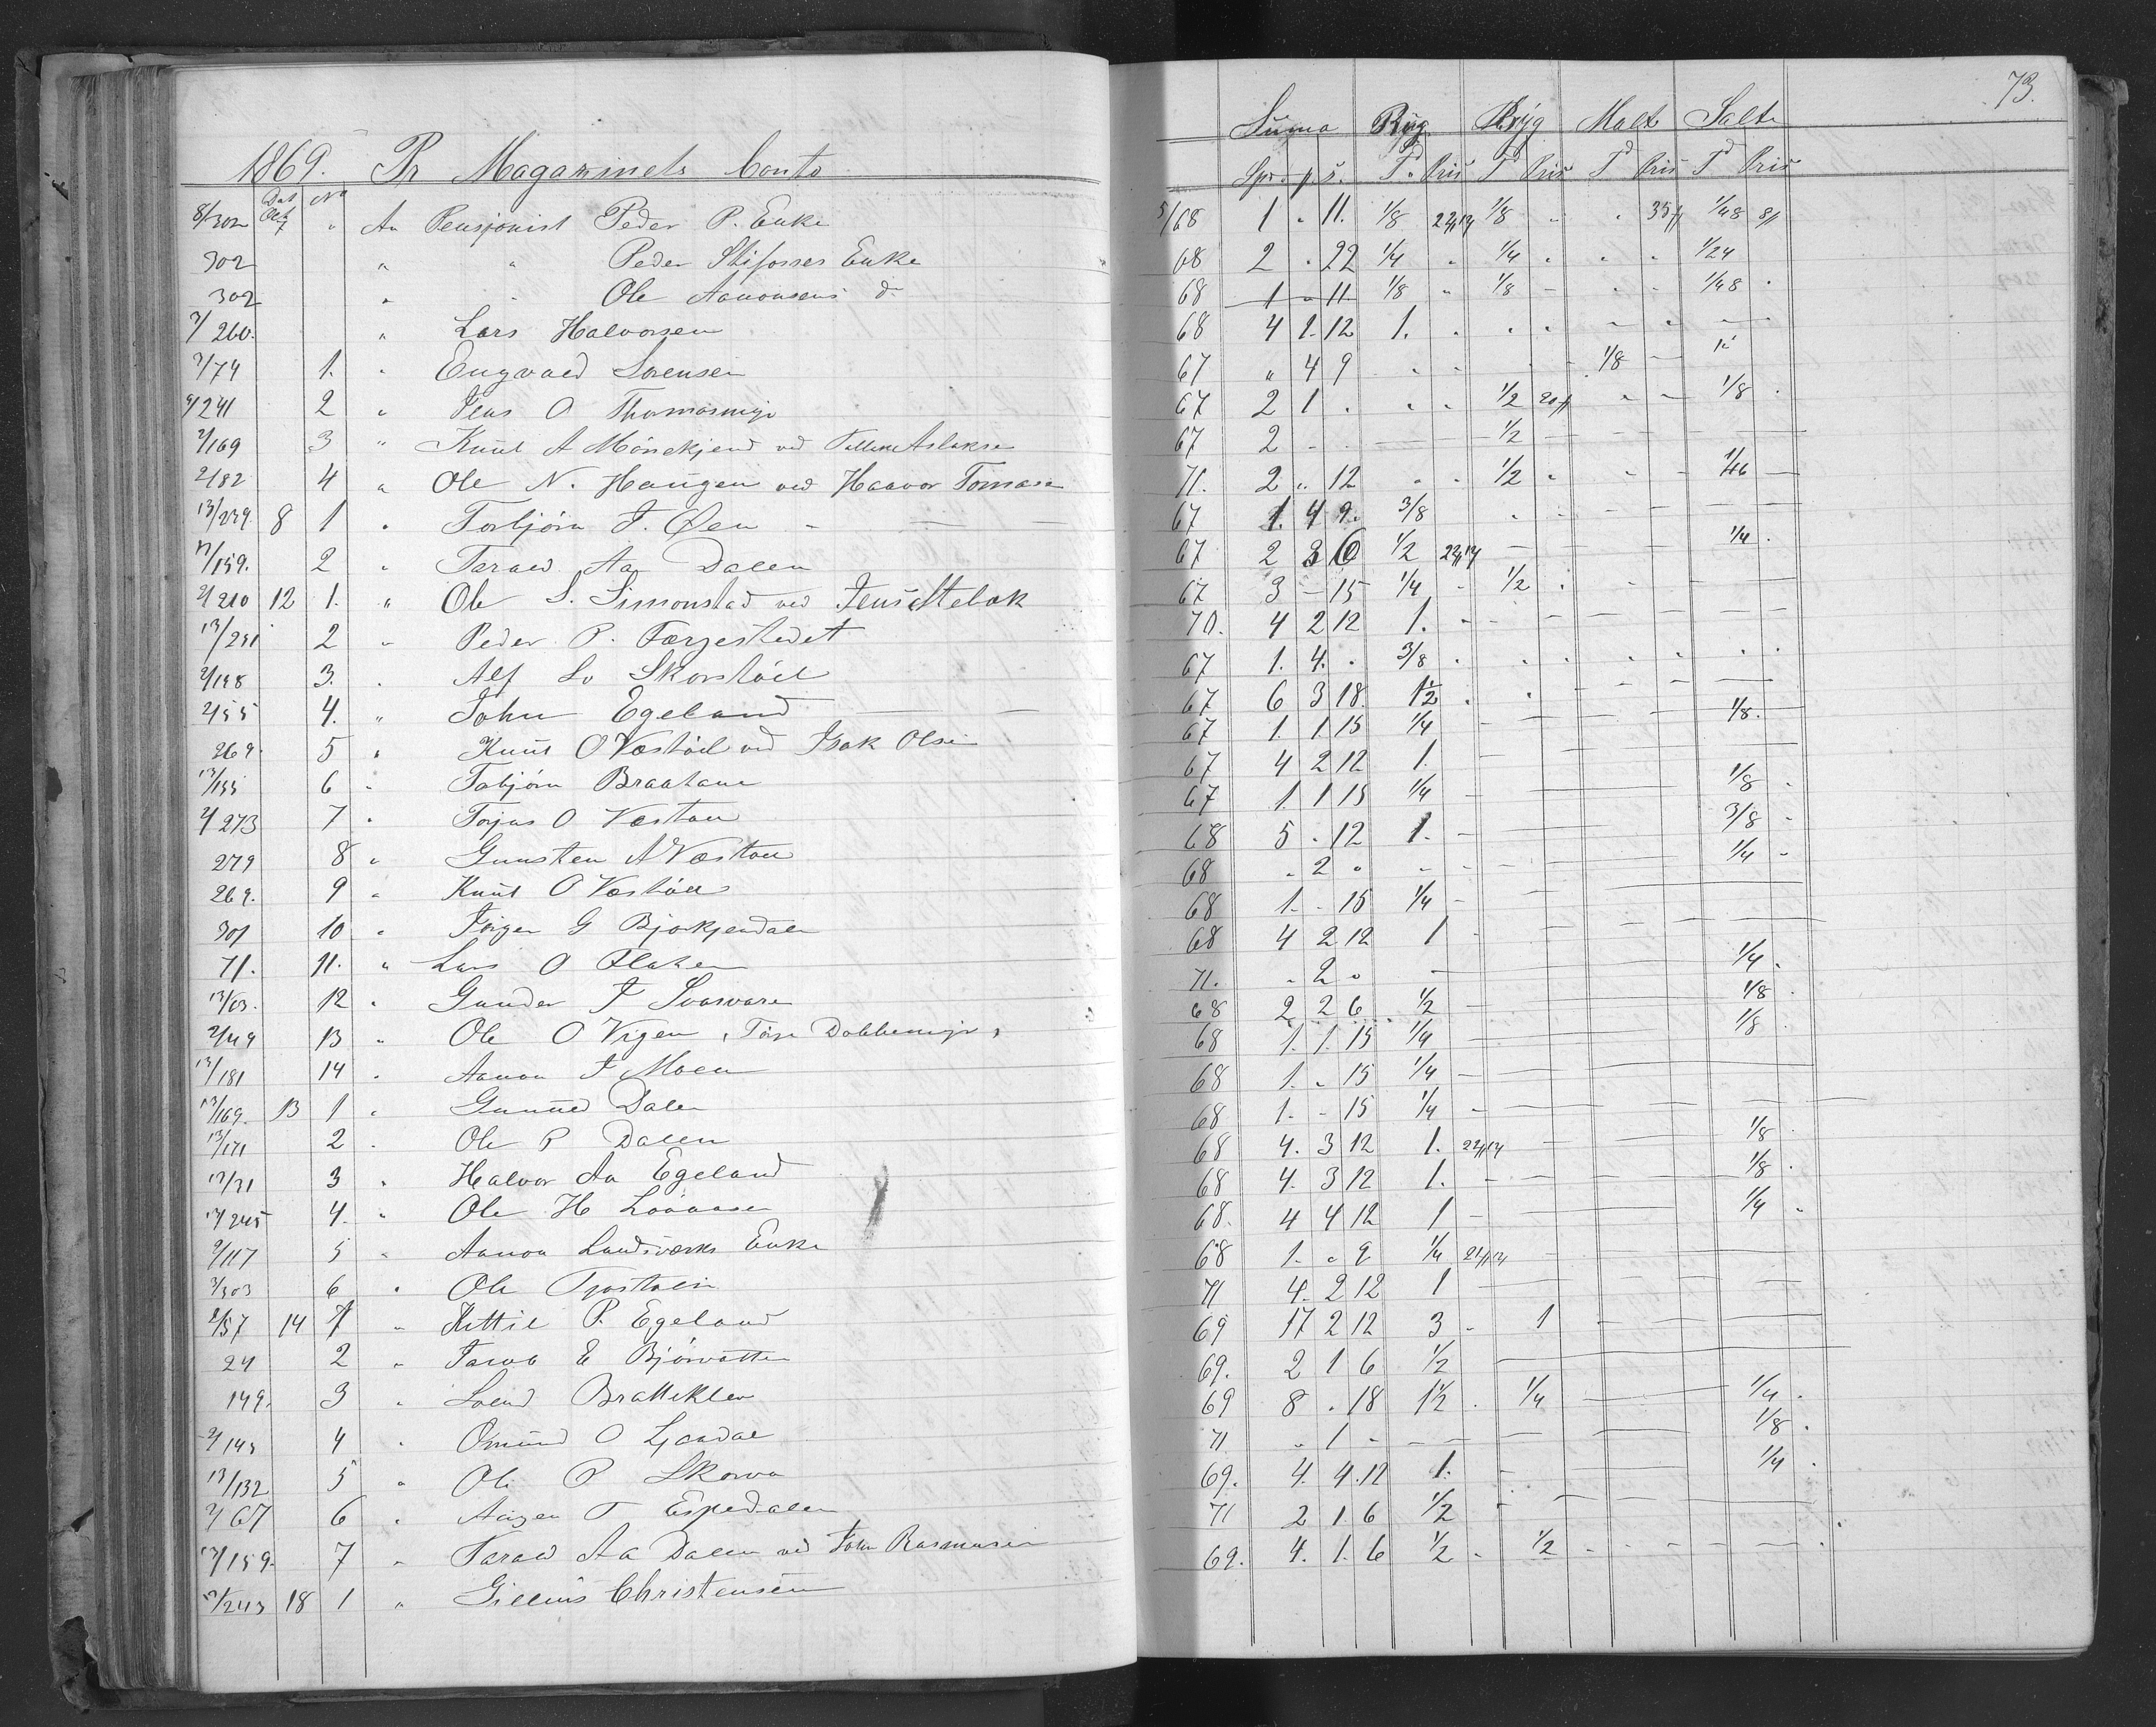 1869. Pr Magazinets Conto
Dat No
8/302 Oct 7 " An Pensjonist Peder P. Enke
302 " " Peder Stifosses Enke
302 " " Ole Aanonsens do
3/260. " Lars Halvorsen
2/74 1. " Engvald Sorensen
4/241 2 " Jens O Thomasmyr
2/169 3 " Knut A ved Aslaksen
2/82 4 " Ole N. Haugen ved Haavor Tomasen
13/239. 8 1 " Torbjörn T. Øen
13/159. 2 " Tarald Aa Dalen
2/210 12 1. " Ole S. Simonstad ved
13/231 2 " Peder P. Færgestedet
2/198 3. " Alf Skorstöil
2/55 4. " John Egeland
269 5 " Knut O Vestöil ved Isak Olsen
13/155 6 " Tobjörn Braatane
4/273 7 " Torjus O Vestøn
279 8 " Gunsten A Vestøn
269. 9 " Knut O Vestöil
301 10 " Jörgen G Bjorkjendalen
71. 11. " Lars O Flaten
13/63. 12 " Gunder T Svasvare
2/49 13 " Ole O Vigen,
13/181 14 " Aanon T Moen
13/169. 13 1 " Gunuld Dalen
13/171 2 " Ole P Dalen
13/31 3 " Halvor Aa Egeland
13/245 4. " Ole H
2/117 5 " Aanon Landsværks Enke
3/303 6 " Ole
2/57 14 1 " Kittil P. Egeland
24 2 " Jacob E Björvatten
149. 3 " Svend Bratteklev
2/143 4 " Omund O
13/132 5 " Ole P Skorva
2/67 6 " T Espedalen
13/159. 7 " Tarald Aa Dalen ved John Rasmusen
2/243 18 1 " Gillius Christensen
73.
Suma Rug Byg Malt Salt
Spd. p. s. Td Pris Td Pris Td Pris Td Pris
5/68 1 " 11. 1/8 1/8 " " 35 1/48 8
68 2 " 22 1/4 " 1/4 " " " 1/24
68 1 " 11. 1/8 " 1/8 - " " 1/48 "
68 4 1 12 1. " " " - " - -
67 " 4 9 " " " - 1/8 -
67 2 1 " " " 1/2 20 " - 1/8 "
67 2 - - 1/2 -
71. 2 " 12 " " 1/2 " " - -
67 1. 4 9. 3/8 " - - -
67 2 3 6 1/2 - - 1/4 "
67 3 - 15 1/4 - 1/2 "
70. 4 2 12 1. - - - -
67 1. 4. " 3/8 " " " " " " "
67 6 3 18. 1 1/2 " " - - -
67 1. 1 15 1/4 - - - 1/8. -
67 4 2 12 1. - -
67 1. 1 15 1/4 - 1/8 "
68 5 " 12 1. - 3/8 "
68 " 2 " - - - 1/4 "
68 1. - 15 1/4 -
68 4 2 12 1 -
71. " 2 " - 1/4 "
68 2 2 6 1/2 - 1/8 "
68 1. 1. 15 1/4 - 1/8
68 1. " 15 1/4 -
68 1. - 15 1/4 -
68 4. 3 12 1. - 1/8 "
68 4. 3 12 1. - 1/8 "
68. 4 4 12 1 - 1/4 "
68 1. " 9 1/4 -
71 4. 2 12 1 -
69 17 2 12 3 - 1 - - -
69. 2 1 6 1/2 -
69 8 " 18 1 1/2 " 1/4 - 1/4 "
71 " 1 - - - - 1/8 "
69. 4. 4. 12 1. - 1/4 "
71 2 1 6 1/2 - - -
69. 4. 1. 6 1/2 - 1/2 - - - -